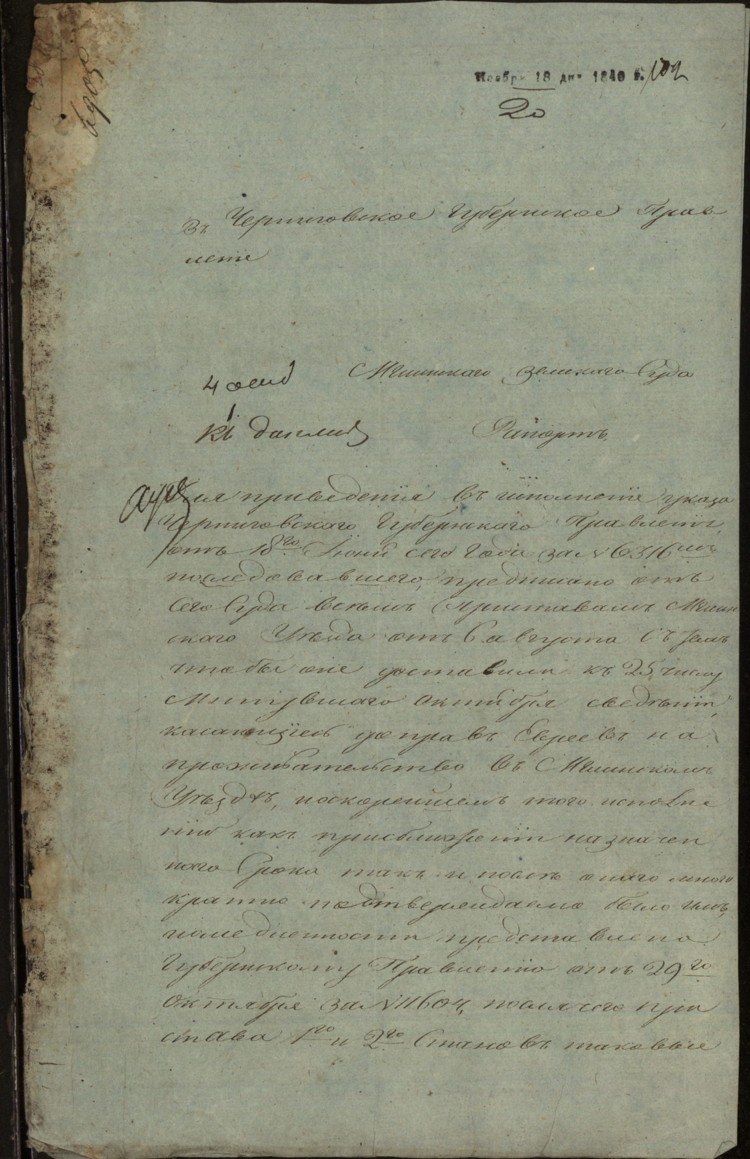 6905
Ноября 18 дня 1840 г. 102
20
Въ Черниговское Губернское Прав
ленiе
4 отд Мглинского Земского Суда
къ Рапортъ
Для приведенiя въ исполненiе указа
Черниговского Губернского Правленiя,
отъ 18го Iюня сего года за N 6316мъ
последовавшего, предписано отъ
сего Суда всемъ Приставамъ Мглин
ского Уѣзда отъ 6 августа съ темъ
чтобы они доставили къ 25 числу
Минувшаго Октября сведѣнiя
касающiесь до правъ Евреевъ на
прожывательство въ Мглинскомъ
Уѣздѣ, поскорейшемъ того исполне
нiю какъ приближенiи назначен
ного Срока такъ и послѣ оного много
кратно подтверждаемо было имъ,
помедленности представлено
Губернскому Правленiю отъ 29го
Октября за N 11604, после чего При
става 1го и 2го Становъ таковые